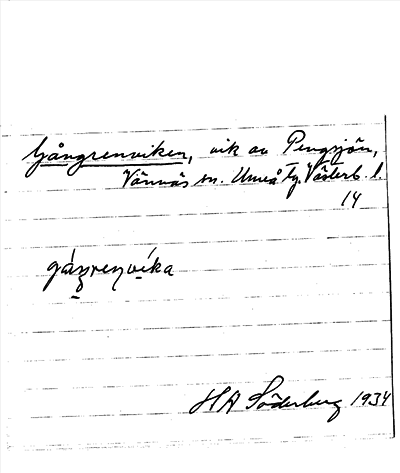 Gångrenviken, vik av Pengsjön,
Vännäs sn. Umeå tg. Västerb. l.
14
HA Söderberg 1934